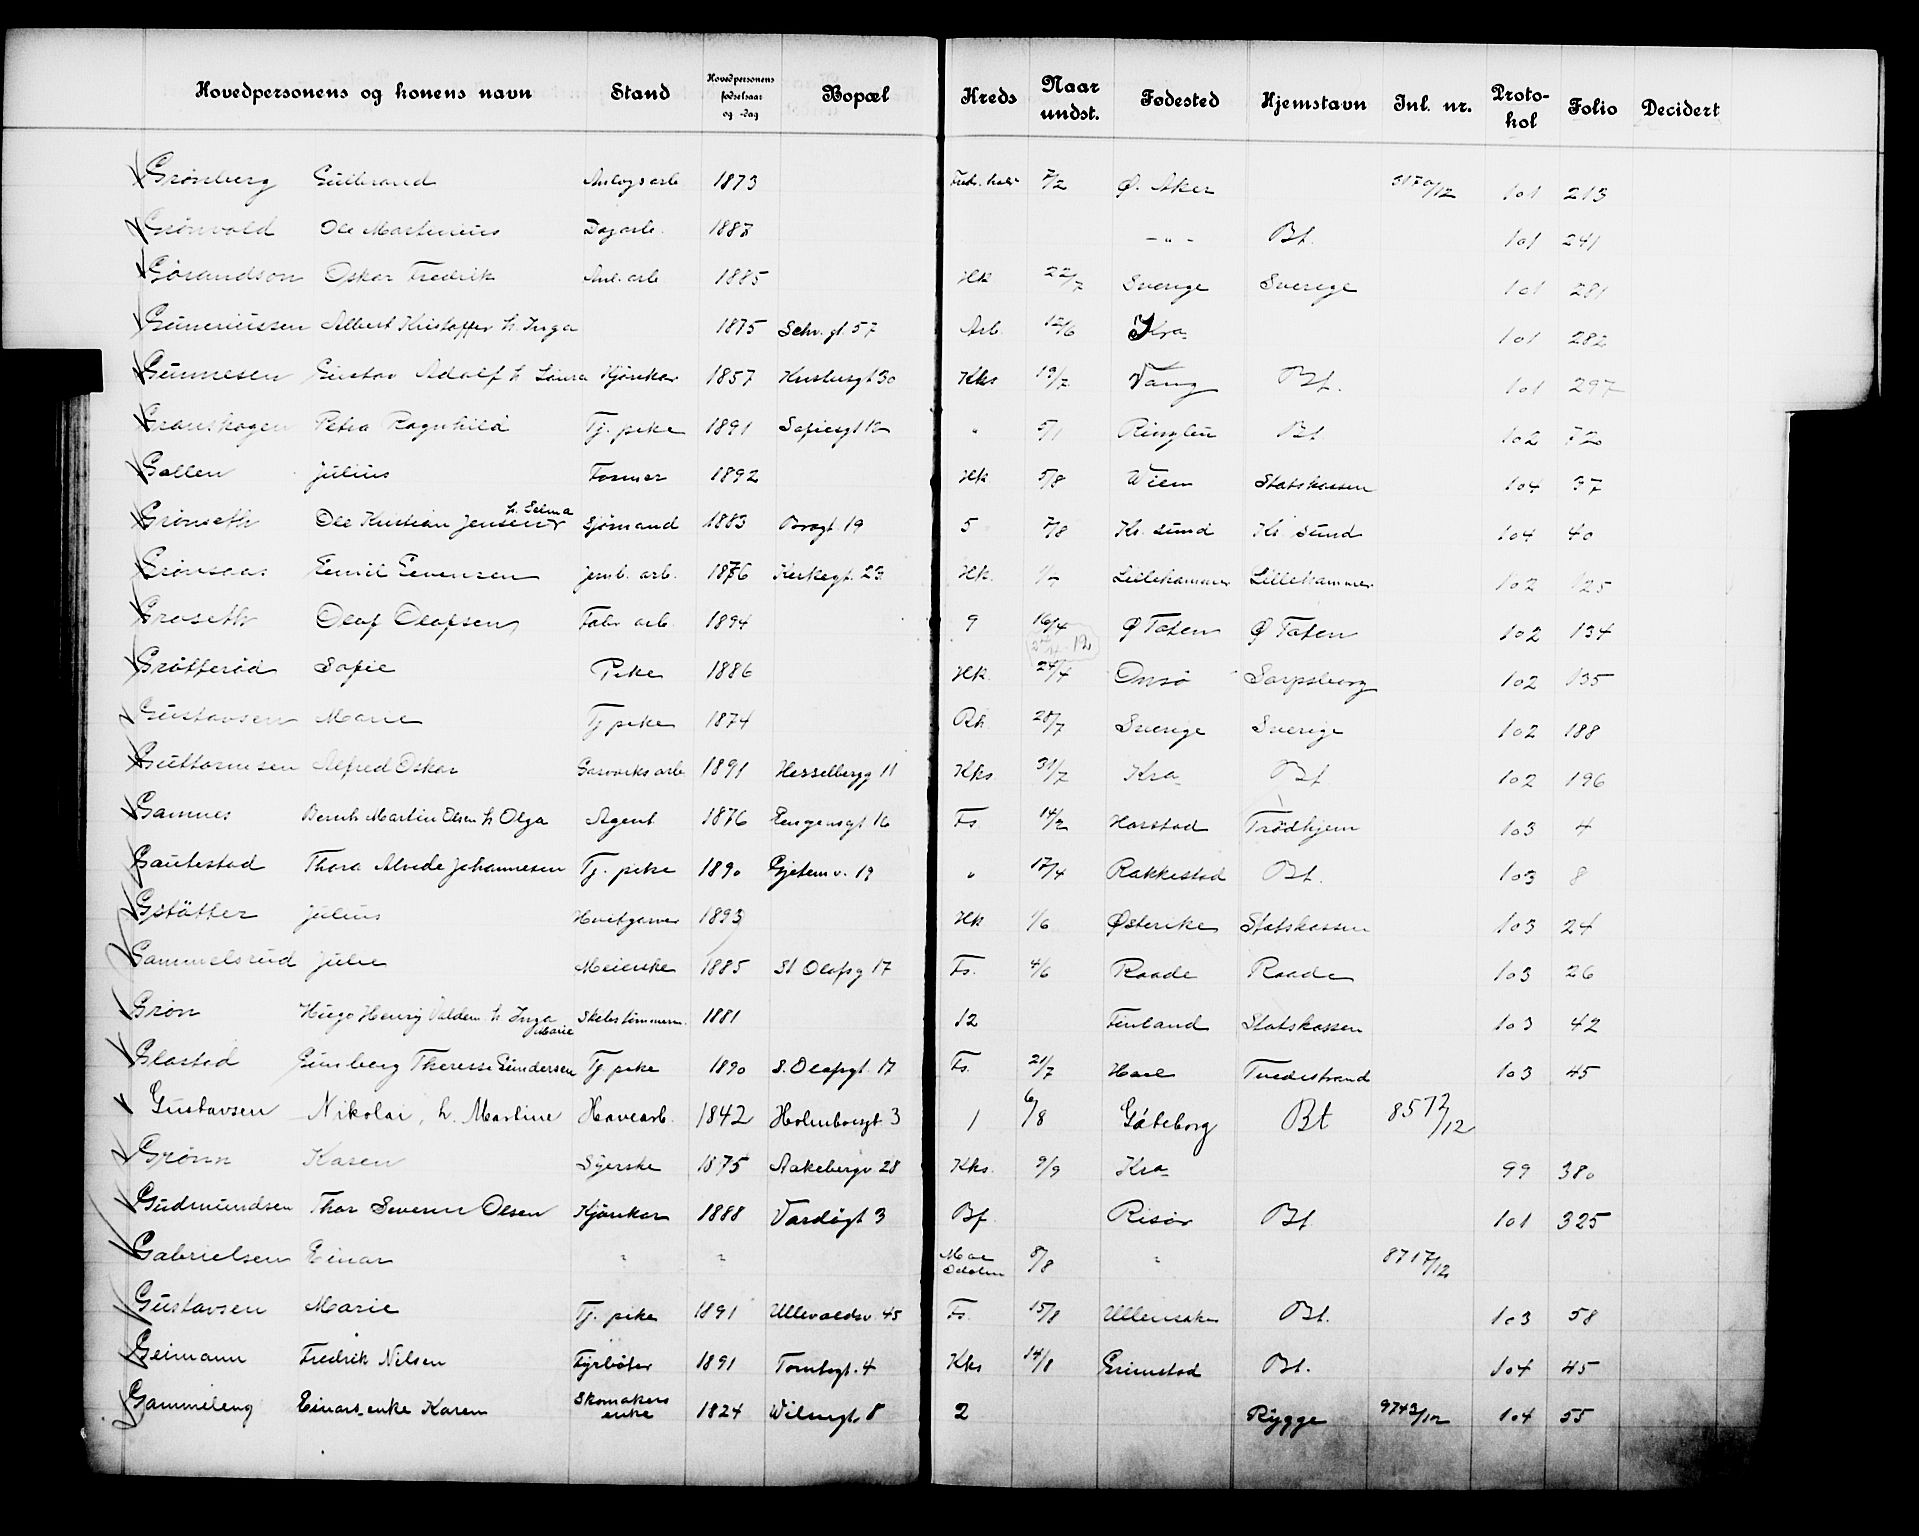 Hovedpersonens og konens navn Stand Hovedpersonens fødselsaar og -dag Bopæl Kreds Naar undst. Fødested Hjemstavn Inl. nr. Protokol Folio Decidert
Grønberg Gulbrand Anlegsarb 1873 7/2 Ø. Aker 3170/12 101 213
Grønvold Ole Martinius Dagarb. 1887 -"- Bt. 101 241
Gørandson Oskar Fredrik Anl. arb 1885 Hk 22/7 Sverige Sverige 101 281
Gunerieussen Albert Kristoffer h. Inga 1875 Schv. gt. 57 Arb. 12/6 Kra. 101 282
Gunnesen Gustav Adolf h Laura Kjørekar 1857 30 Kks 19/7 Vang Bt. 101 297
Granskogen Petra Ragnhild Tj. pike 1891 Sofiesgt 10 " 5/1 Bt 102 72
Gallen Julius Former 1892 Hk 5/8 Wien Statskassen 104 37
Grønseth Ole Kristian Jensen h. Selma Sjømand 1883 Brogt. 19 5 7/8 Kr. sund Kr. sund 104 40
Grønsaas Emil Evensen Jernb. arb. 1876 Kirkegt. 23 Hk. 1/7 Lillehammer Lillehammer 102 125
Graseth Olaf Olafsen Fabr arb. 1894 9 16/4 Ø Toten Ø Toten 102 134
Grøtterød Sofie Pike 1886 Hk. 24/4 Onsø Sarpsborg 102 135
Gustavsen Marie Tj pike 1874 Rh. 28/7 Sverige Sverige 102 188
Guttormsen Alfred Oskar Garveriksarb 1891 Hesselbergg 11 Kks. 31/7 Kra. Bt 102 196
Gamnes Bernh Martin Olsen h Olga Agent 1876 16 Fs. 14/2 Harstad Trødhjem 103 4
Gautestad Thora Alvide Johannesen Tj. pike 1890 Gjetemv. 19 " 17/4 Rakkestad Bt. 103 8
Gstötter Julius Hvitgarver 1893 Hk 1/6 Østerike Statskassen 103 24
Gammelsrud Julie Meierske 1885 St Olafsg 17 Fs. 4/6 Raade Raade 103 26
Grön Hugo Henry Valdem. h Inga Marie Skibstømmerm. 1881 12 Finland Statskassen 103 42
Glastad Gunberg Therese Gundersen Tj pike 1890 S. Olafsgt. 17 Fs. 21/7 Tvedestrand 103 45
Gustavsen Nikolai, h. Martine Havearb. 1842 Holmboesgt 3 1 6/8 Göteborg Bt 8572/12
Grønn Karen Syerske 1875 Aakebergv. 28 Kks. 9/9 Kra. 99 380
Gudmundsen Thor Severin Olsen Kjørekar 1888 Vardøgt 3 Bf. Risør Bt 101 325
Gabrielsen Einar " " 8/8 " 8717/12
Gustavsen Marie Tj. pike 1891 Ullevaldsv. 45 Fs. 15/8 Ullensaker Bt. 103 58
Geimann Fredrik Nilsen Fyrbøter 1891 Tomtegt. 4 Kks 14/8 Grimstad Bt. 104 45
Gammeleng Einars enke Karen Skomakers enke 1824 Wilsesgt. 8 2 Rygge 9743/12 104 55